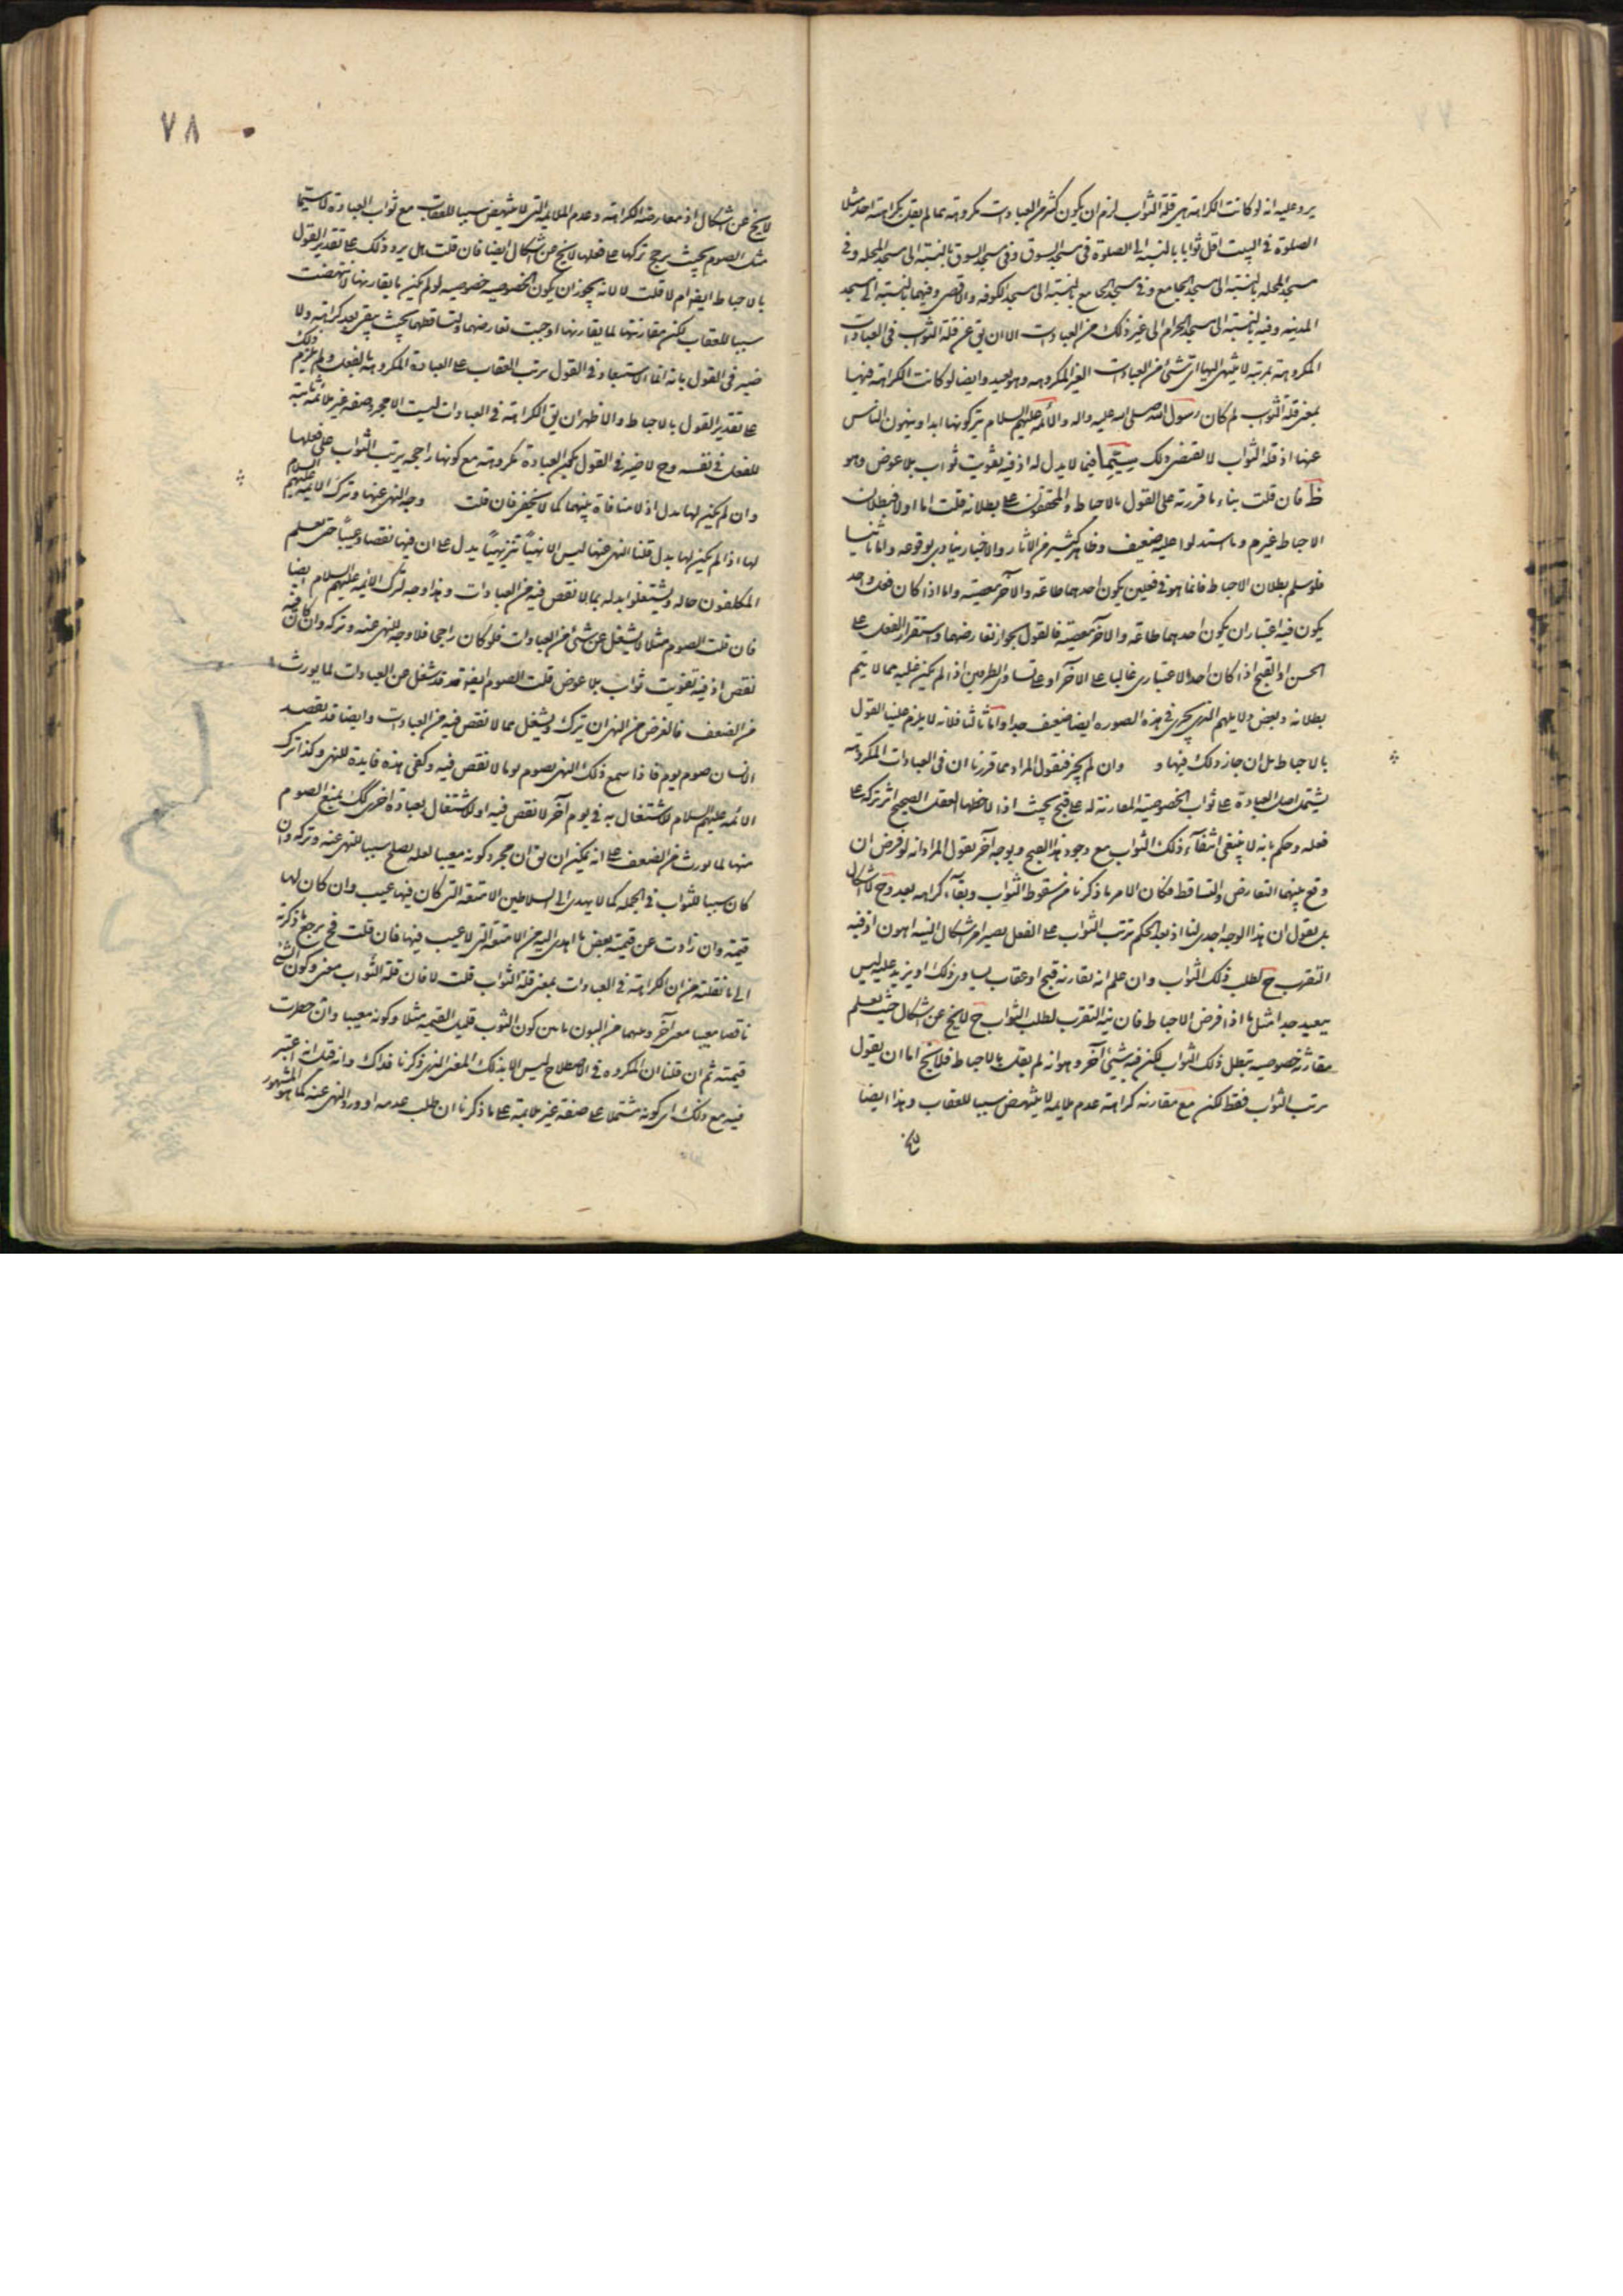 يرد عليه انه لو كانت الكراهة هي قلة الثواب لزم ان يكون كثير من العبادات مكروهة مما لم يقل بكراهته احد مثلا
الصلوة في البيت اقل ثوابا بالنسبة الى الصلوة في مسجد السوق وفي مسجد السوق بالنسبة الى مسجد المحله وفي
مسجد المحله بالنسبة الى مسجد الجامع وفي مسجد الجامع بالنسبة الى مسجد الكوفه والاقصى وفيهما بالنسبة الى مسجد
المدينه وفيه بالنسبة الى مسجد الحرام الى غير ذلك من العبادات الا ان يق عن قلة الثواب في العبادات
المكروهة بمرتبة لا ينتهى اليها اى شئ من العبادات الغير المكروهه وهو بعيد وايضا لو كانت الكراهة فيها
بمعنى قلة الثواب لم كان رسول الله صلى الله عليه واله والائمة عليهم السلام يتركونها ابدا وينهون الناس
عنها اذ قلة الثواب لا تقتضى ذلك سيّما فيما لا بدل له اذ فيه تفويت ثواب بلا عوض وهو
ظ فان قلت بناء ما قررته على القول بالاحباط والمحققون على بطلانه قلت اما اولا فبطلان
الاحباط غير م وما استدلوا عليه ضعيف وظاهر كثير من الآثار والاخبار ينادى بوقوعه واما ثانيا
فلو سلم بطلان الاحباط فانما هو في فعلين يكون احدهما طاعة والآخر معصية واما اذا كان فعل واحد
يكون فيه اعتباران يكون احدهما طاعة والآخر معصية فالقول بجواز تعارضهما واستقرار الفعل على
الحسن او القبح اذا كان احد الاعتبارى غالبا على الآخر او على تساوى الطرفين اذا لم يكن غلبه مما لا يتم
بطلانه وبعض دلايلهم الذى يجرى في هذه الصوره ايضا ضعيف جدا واما ثالثا فلانه لا يلزم علينا القول
بالاحباط بل ان جاز ذلك فيها و وان لم يجز فنقول المراد مما قررنا ان في العبادات المكروهه
يشتمل اصل العبادة على ثواب الخصوصية المقارنة له على قبح بحيث اذا لاحظها العقل الصحيح اثر تركه على
فعله وحكم بانه لا ينبغى ابتغاء ذلك الثواب مع وجود هذا القبح وبوجه آخر نقول المراد انه لو فرض ان
وقع بينهما التعارض والتساقط فكان الامر ما ذكرنا من سقوط الثواب وبقاء كراهه بعد وح لا اشكال
بل نقول ان هذا الوجه اجدى لنا اذ بعد الحكم بترتب الثواب على الفعل يصير امر اشكال النيه اهون اذ فيه
التقرب ح لطلب ذلك الثواب وان علم انه تقارنه قبح او عقاب يساوى ذلك او يزيد عليه ليس
ببعيد جدا مثل ما اذا فرض الاحباط فان نيه التقرب لطلب الثواب ح لا يخ عن اشكال حيث يعلم
مقارنة خصوصيه تبطل ذلك الثواب لكن فيه شئ آخر وهو انه لم يقل بالاحباط فلا يخ اما ان يقول
بترتب الثواب فقط لكن مع مقارنه كراهة عدم ملايمه لا ينتهض سببا للعقاب وهذا ايضا
لا يخ
٧٨
لا يخ عن اشكال اذ معارضة الكراهة وعدم الملايمة التى لا ينتهض سببا للعقاب مع ثواب العبادة لا سيّما
مثل الصوم بحيث يرجح تركها على فعلها لا يخ عن اشكال ايضا فان قلت هل يرد ذلك على تقدير القول
بالاحباط ايضا ام لا قلت لا لانه يجوز ان يكون الخصوصيه خصوصيه لو لم يكن ما يقارنها لانتهضت
سببا للعقاب لكن مقارنتها لما يقارنها اوجبت تعارضهما وتساقطهما بحيث يبقى بعد كراهة ولا
ضير في القول بانه انما الاستبعاد في القول بترتب العقاب على العبادة المكروهة بالفعل ولم يلزم ذلك
على تقدير القول بالاحباط والاظهر ان يق الكراهة في العبادات ليست الا مجرد صفة غير ملائمة ثابتة
للفعل في نفسه وح لا ضير في القول بكون العبادة مكروهة مع كونها راجحه يرتب الثواب على فعلها
وان لم يكن لها بدل اذ لا منافاة بينهما كما لا يخفى فان قلت وجه النهى عنها وترك الائمة عليهم السلام
لها اذا لم يكن لها بدل قلنا النهى عنها ليس الا نهيا تنزيهيا يدل على ان فيها نقصا وعيبا حتى يعلم
المكلفون حاله ويشتغلوا بدله بما لا نقص فيه من العبادات وهذا وجه لترك الائمه عليهم السلام ايضا
فان قلت الصوم مثلا لا يشغل عن شئ من العبادات فلو كان راجحا فلا وجه للنهى عنه وتركه وان كان فيه
نقص اذ فيه تفويت ثواب بلا عوض قلت الصوم ايضا قد قد شغل عن العبادات لما يورث
من الضعف فالغرض من النهى ان يترك ويشغل بما لا نقص فيه من العبادات وايضا قد يقصد
الانسان صوم يوم فاذا سمع ذلك النهى يصوم يوما لا نقص فيه وكفى هذه فايدة للنهى وكذا ترك
الائمة عليهم السلام للاشتغال به في يوم آخر لا نقص فيه او للاشتغال بعبادة اخرى لك يمنع الصوم
منها لما يورث من الضعف على انه يمكن ان يق ان مجرد كونه معيبا لعله يصلح سببا للنهى عنه وتركه وان
كان سببا للثواب في الجمله كما لا يهدى الى السلاطين الامتعة التى كان فيها عيب وان كان لها
قيمة وان زادت عن قيمة بعض ما اهدى اليه من الامتعة التى لا عيب فيها فان قلت فح يرجع ما ذكرته
الى ما نقلته من ان الكراهة في العبادات بمعنى قلة الثواب قلت لا فان قلة الثواب معنى وكون الشئ
ناقصا معيبا معنى آخر وبينهما من البون ما بين كون الثوب قليل القيمة مثلا وكونه معيبا وان حصلت
قيمته ثم ان قلنا ان المكروه في الاصطلاح ليس الا بذلك المعنى الذى ذكرنا فذاك وانه قلت انه اعتبر
فيه مع ذلك اى كونه مشتملا على صفة غير ملايمة على ما ذكرنا ان طلب عدمه او ورد النهى عنه كما هو المشهور